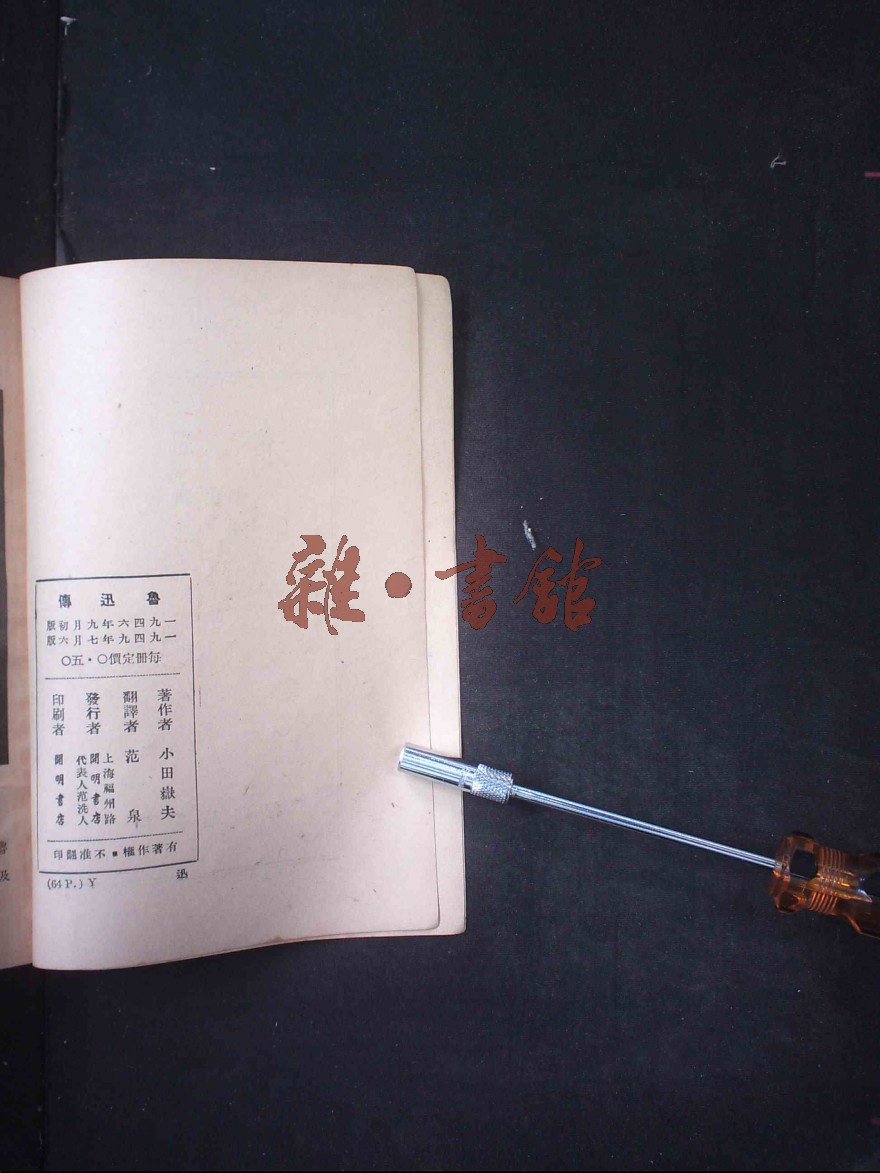 傳迅魯
版初月九年六四九一
版六月七年九四九一
〇五・〇價定冊每
著作者 小田嶽夫
翻譯者 范泉
發行者 上海福州路 開明書店 代表人范洗人
印刷者 開明書店
印翻准不・權作著有
(64 P.) Y 迅
雜・書館